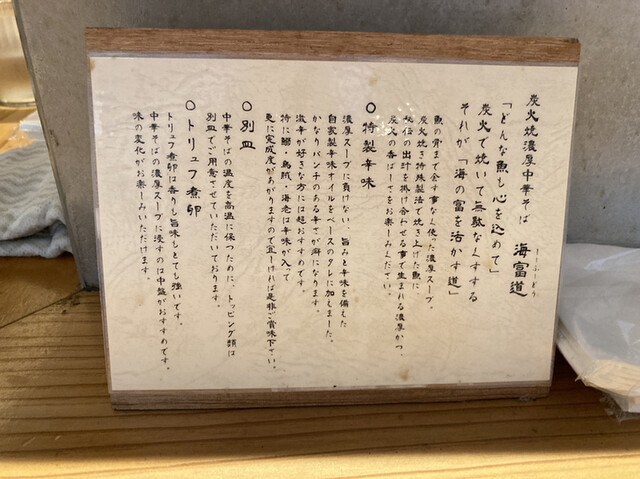 炭火焼濃厚中華そば 海富道
しーふーどう
「どんな魚も心を込めて」
炭火で焼いて無駄なくする
それが「海の富を活かす道」
魚の骨まで余す事なく使った濃厚スープ。
炭火焼き特殊製法で焼き上げた魚に
秘伝の出汁を掛け合わせる事で生まれる濃厚かつ、
炭火の香ばしーさをお楽しみください。
○特製辛味
濃厚スープに負けない、旨みと辛味を備した
自家製辛味オイルをベースのタレに加しました。
かなりパンチのある辛さが癖になります。
激辛が好きな方には超おすすめです。
特に鰮・烏賊・海老は辛味が入って
更に完成度があがりますので宜しければ是非ご賞味下さい。
○別皿
中華そばの温度を高温に保つために、トッピング類は
別皿でご用意させていただいております。
○トリュフ煮卵
トリュフ煮卵は香りも旨味もとても強いです。
中華そばの濃厚スープに浸すのは中盤がおすすめです。
味の変化がお楽しみいただけます。